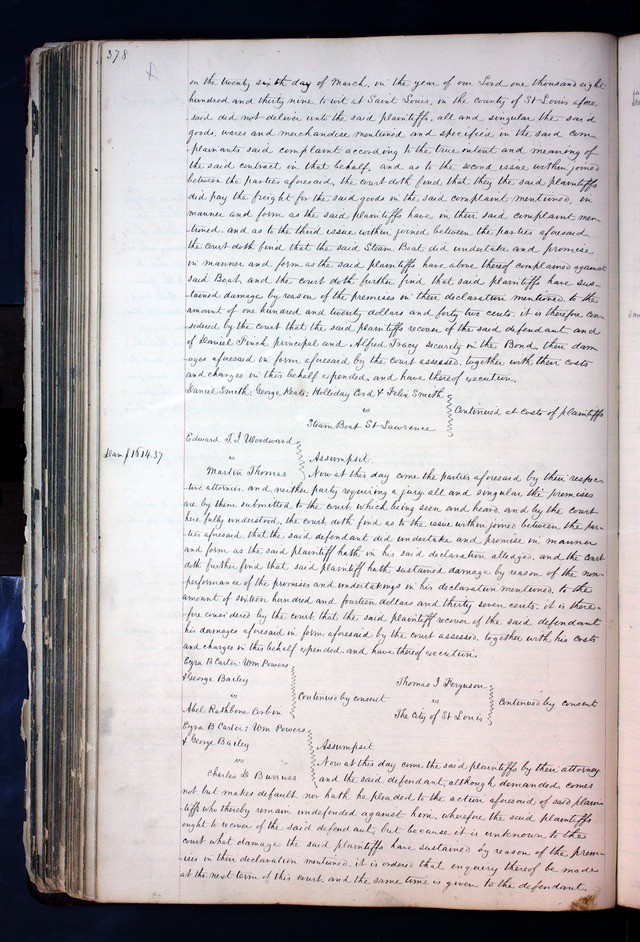 378
on the twenty sixth day of March, in the year of our Lord one thousand eight
hundred and thirty nine to wit at Saint Louis, in the county of St Louis afore
said did not deliver unto the said plaintiffs, all and singular the said
goods, wares and merchandise mentioned and specified in the said com
plainants said complaint according to the true intent and meaning of
the said contract in that behalf, and as to the second issue within joined
between the parties aforesaid, the court doth find that they the said plaintiffs
did pay the freight for the said goods in the said complaint mentioned, in
manner and form as the said plaintiffs have in their said complaint men
tioned, and as to the third issue within joined between the parties aforesaid
the court doth find that the said Steam Boat did undertake and promise
in manner and form as the said plaintiffs have above thereof complained against
said Boat, and the court doth further find that said plaintiffs have sus-
tained damage by reason of the premises in their declaration mentioned to the
amount of one hundred and twenty dollars and forty two cents, it is therefore con
sidered by the court that the said plaintiffs recover of the said defendant and
of Daniel Finch principal and Alfred Tracy security in the Bond, their dam
ages aforesaid in form aforesaid by the court assessed, together with their costs
and charges in this behalf expended, and have thereof execution.
Daniel Smith; George Keats; Holliday Cord & Felix Smith
vs
Steam Boat St Lawrence
Continued at costs of plaintiffs
Edward T. J Woodward
Dam $1614.37
vs
Assumpsit
Martin Thomas
Now at this day come the parties aforesaid by their respec-
tive attornies, and neither party requiring a jury all and singular the premises
are by them submitted to the court which being seen and heard, and by the court
here fully understood, the court doth find as to the issue within joined between the par-
ties aforesaid, that the said defendant did undertake and promise in manner
and form as the said plaintiff hath in his said declaration alledged, and the court
doth further find that said plaintiff hath sustained damage by reason of the non-
performance of the promises and undertakings in his declaration mentioned, to the
amount of sixteen hundred and fourteen dollars and thirty seven cents, it is there-
fore considered by the court that the said plaintiff recover of the said defendant
his damages aforesaid in form aforesaid by the court assessed, together with his costs
and charges in this behalf expended, and have thereof execution.
Ezra B Carter; Wm Powers
& George Bailey
vs
Abel Rathbone Corbon
Continued by consent
Thomas J Ferguson
vs
The City of St Louis
Continued by consent
Ezra B Carter; Wm Powers
& George Bailey
vs
Charles D Burruss
Assumpsit
Now at this day come the said plaintiffs by their attorney
and the said defendant, although demanded comes
not but makes default, nor hath he pleaded to the action aforesaid of said plain-
tiffs who thereby remain undefended against him, wherefore the said plaintiffs
ought to recover of the said defendant, but because it is unknown to the
court what damage the said plaintiffs have sustained by reason of the prem-
ises in their declaration mentioned, it is ordered that enquiry thereof be made
at the next term of this court, and the same time is given to the defendant.